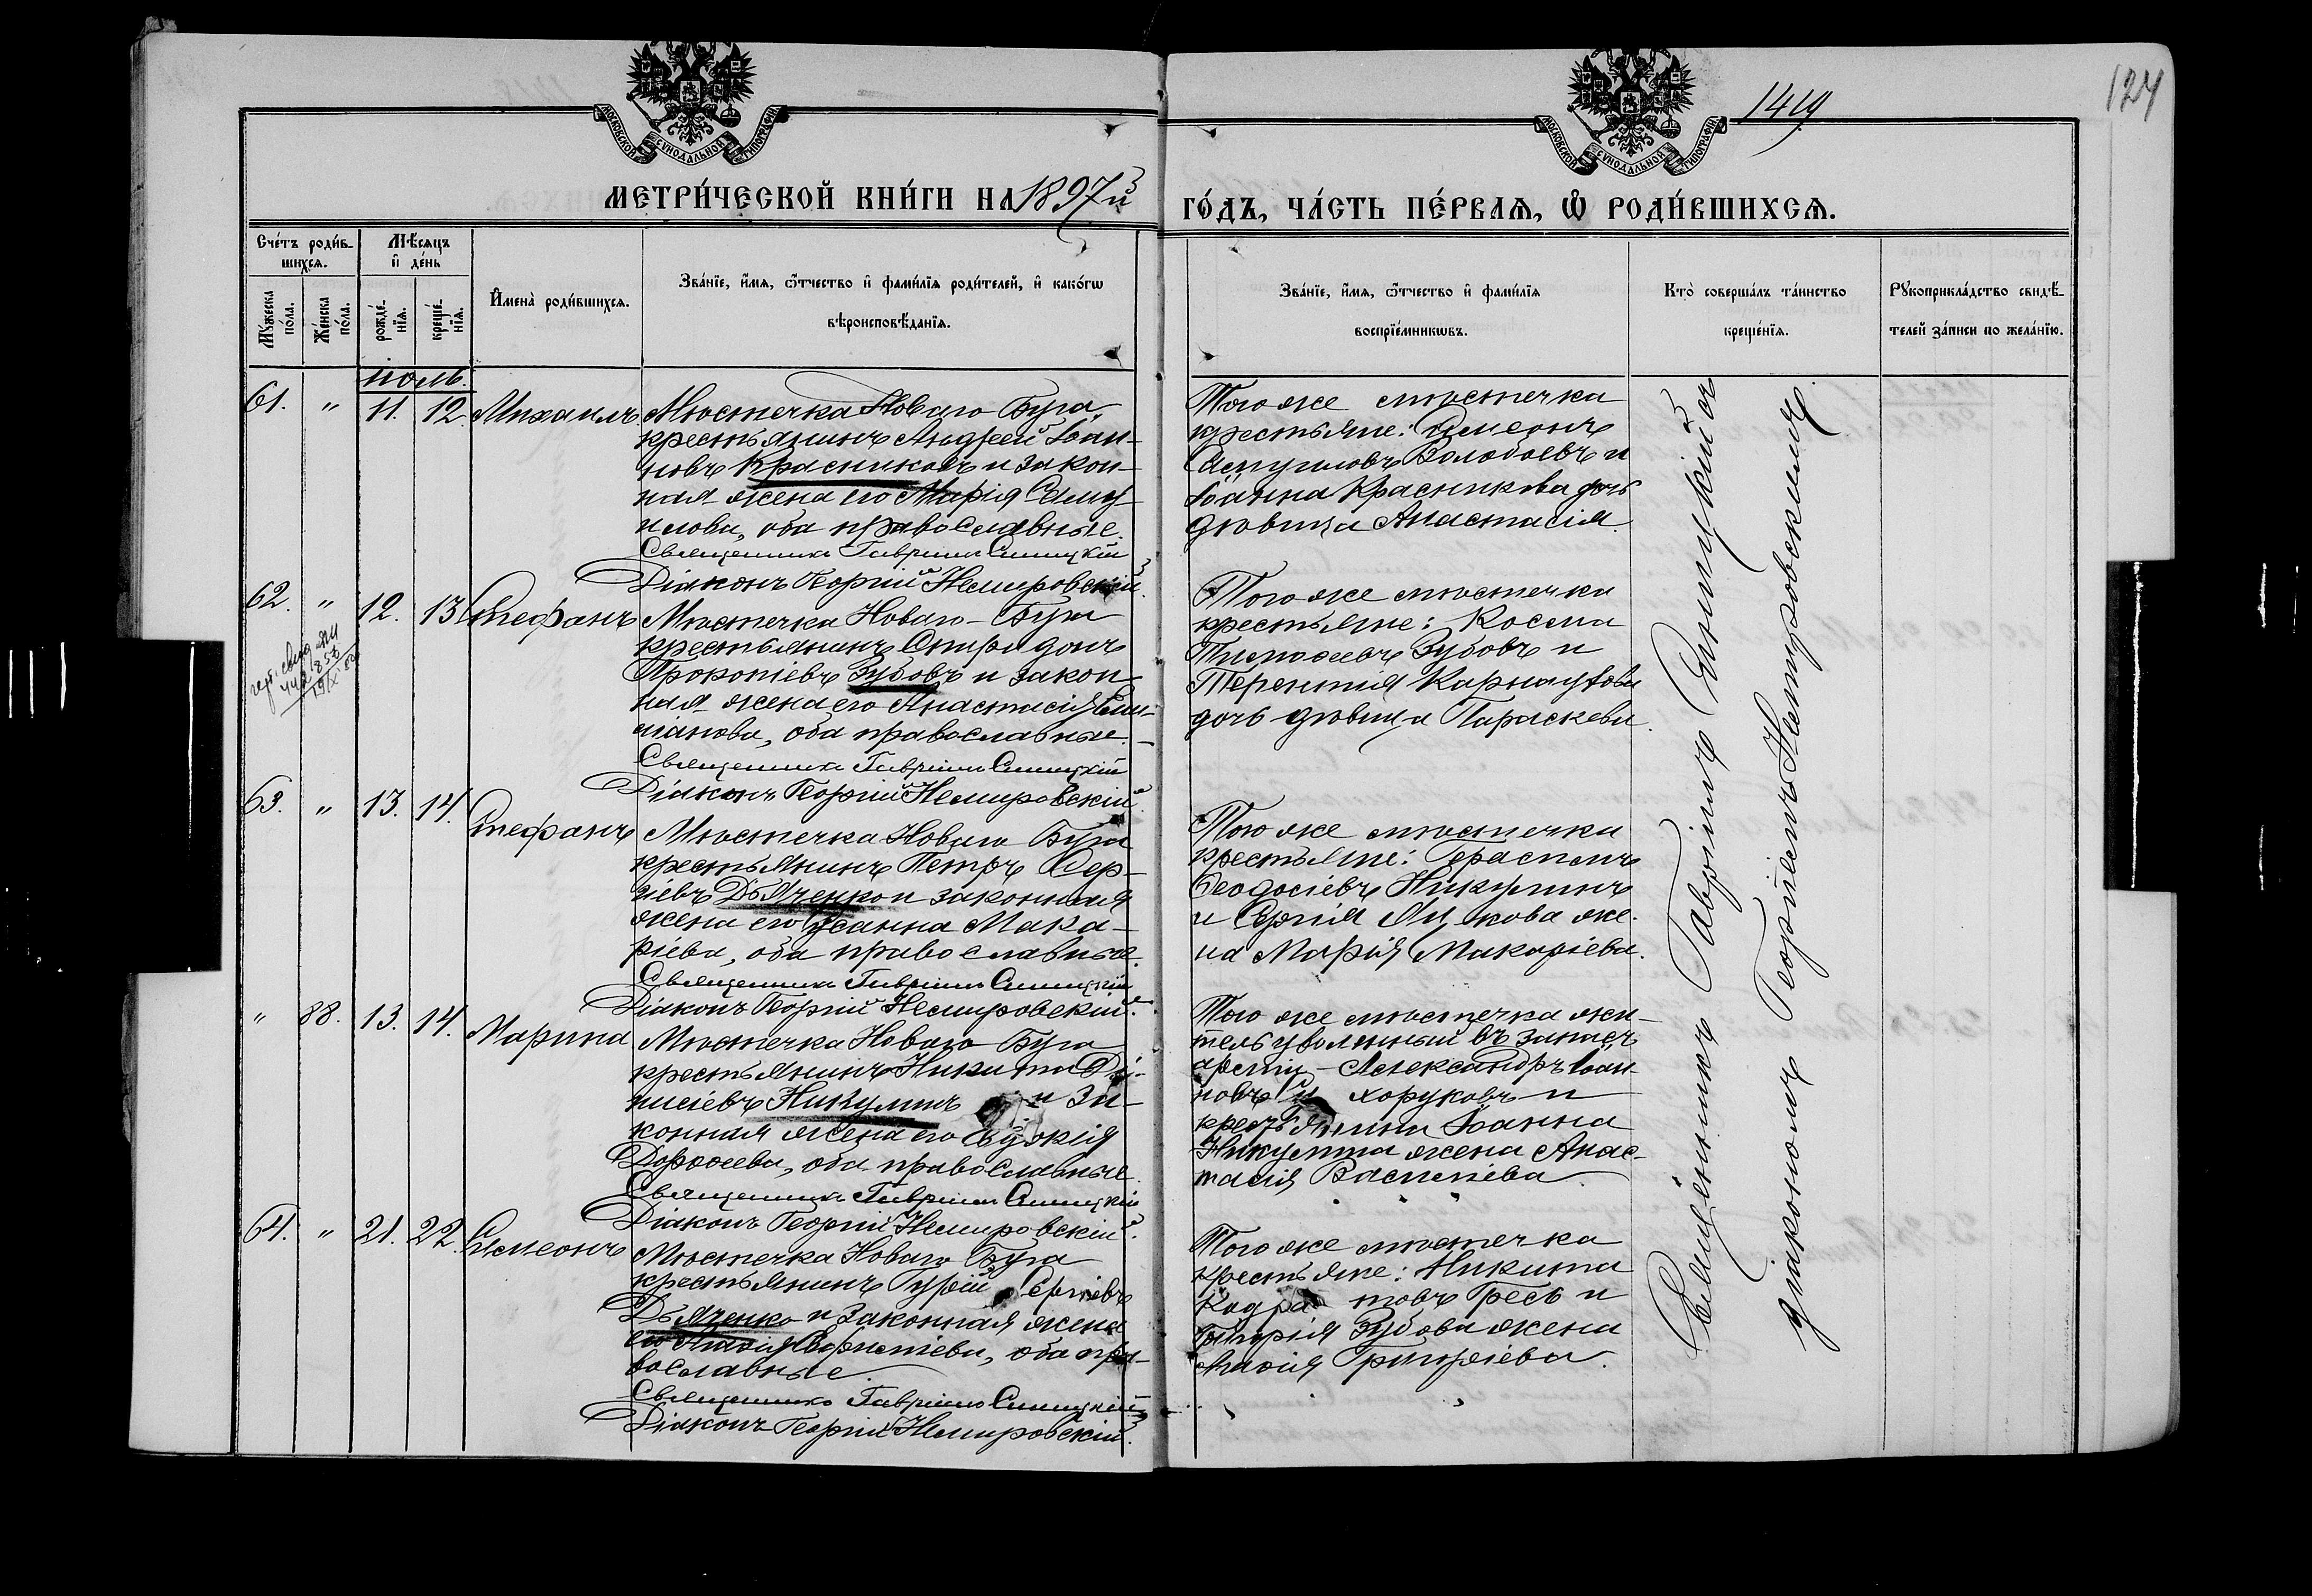 124
1419
МОСКОВСКОЙ СѴНОДАЛЬНОЙ ТИПОГРАФІИ
МОСКОВСКОЙ СѴНОДАЛЬНОЙ ТИПОГРАФІИ
МЕТРИ́ЧЕСКОЙ КНИ́ГИ НА 1897й
ГО́ДЪ, ЧА́СТЬ ПЕ́РВАѦ, Ѡ҆ РОДИ́ВШИХСѦ.
Сче́тъ роди́в-
шихсѧ.
Мꙋ́жеска по́ла.
Же́нска по́ла.
Мѣ́сѧцъ
и҆ де́нь
рожде́-нїѧ.
креще́-нїѧ.
И҆мена̀ роди́вшихсѧ.
Зва́нїе, и҆́мѧ, ѻ҆́тчество и҆ фами́лїѧ роди́телей, и҆ како́гѡ
вѣроисповѣ́данїѧ.
Зва́нїе, и҆́мѧ, ѻ҆́тчество и҆ фами́лїѧ
воспрїе́мникѡвъ.
Кто̀ соверша́лъ та́инство
креще́нїѧ.
Рꙋкоприкла́дство свидѣ́-
телей за́писи по жела́нїю.
Іюль.
61. " 11. 12. Михаилъ
Мѣстечка Новаго Буга,
крестьянинъ Андрей Іоан-
новъ Красниковъ и закон-
ная жена его Марія Саму-
илова, оба православные.
Священникъ Гавріилъ Синицкій
Діаконъ Георгій Немировскій.
Того же мѣстечка
крестьяне: Симеонъ
Самуиловъ Волобоевъ и
Іоанна Красникова дочь
дѣвица Анастасія
Священникъ Гавріилъ Синицкій съ
діакономъ Георгіемъ Немировскимъ.
62. " 12. 13 Стефанъ
Мѣстечка Новаго-Буга
крестьянинъ Спиридонъ
Прокопіевъ Зубовъ и закон-
ная жена его Анастасія
оба православные.
Священникъ Гавріилъ Синицкій
Діаконъ Георгій Немировскій.
Того же мѣстечка
крестьяне: Косма
Тимоѳеевъ Зубовъ и
Терентія Карнаухова
дочь дѣвица Параскева.
63. " 13. 14. Стефанъ
Мѣстечка Новаго Буга
крестьянинъ Петръ Сер-
гіевъ Дьяченко и законная
жена его Іоанна Мака-
ріева, оба православные.
Священникъ Гавріилъ Синицкій
Діаконъ Георгій Немировскій.
Того же мѣстечка
крестьяне: Герасимъ
Ѳеодосіевъ Никулинъ
и Сергія же-
на Марія Макаріева.
" 88. 13. 14. Марина
Мѣстечка Новаго Буга
крестьянинъ Никита Ді-
нисіевъ Никулинъ и за-
конная жена его Евдокія
Дороѳеева, оба православные.
Священникъ Гавріилъ Синицкій
Діаконъ Георгій Немировскій.
Того же мѣстечка жи-
тель уволенный въ
Александръ Іоан-
новъ и
крестьянина Іоанна
Никулина жена Анас-
тасія Василіева.
64. " 21. 22. Симеонъ
Мѣстечка Новаго Буга
крестьянинъ Гурій Сергіевъ
Дьяченко и законная жена
его оба пра-
вославные.
Священникъ Гавріилъ Синицкій
Діаконъ Георгій Немировскій.
Того же мѣстечка
крестьяне: Никита
Гресь и
Григорія Зубова жена
Григоріева.